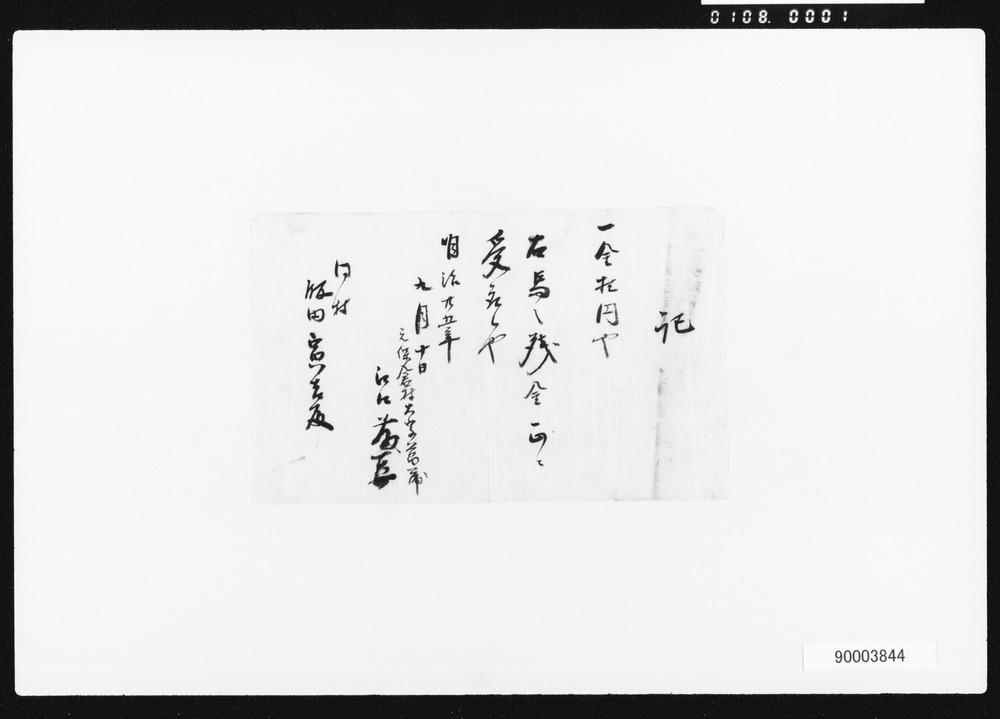 0108. 0001
記
一金拾円也
右馬之残金正ニ
受取候也
明治廿五年
九月十日
大字菖蒲
江口
同村
飯田寅吉殿
90003844